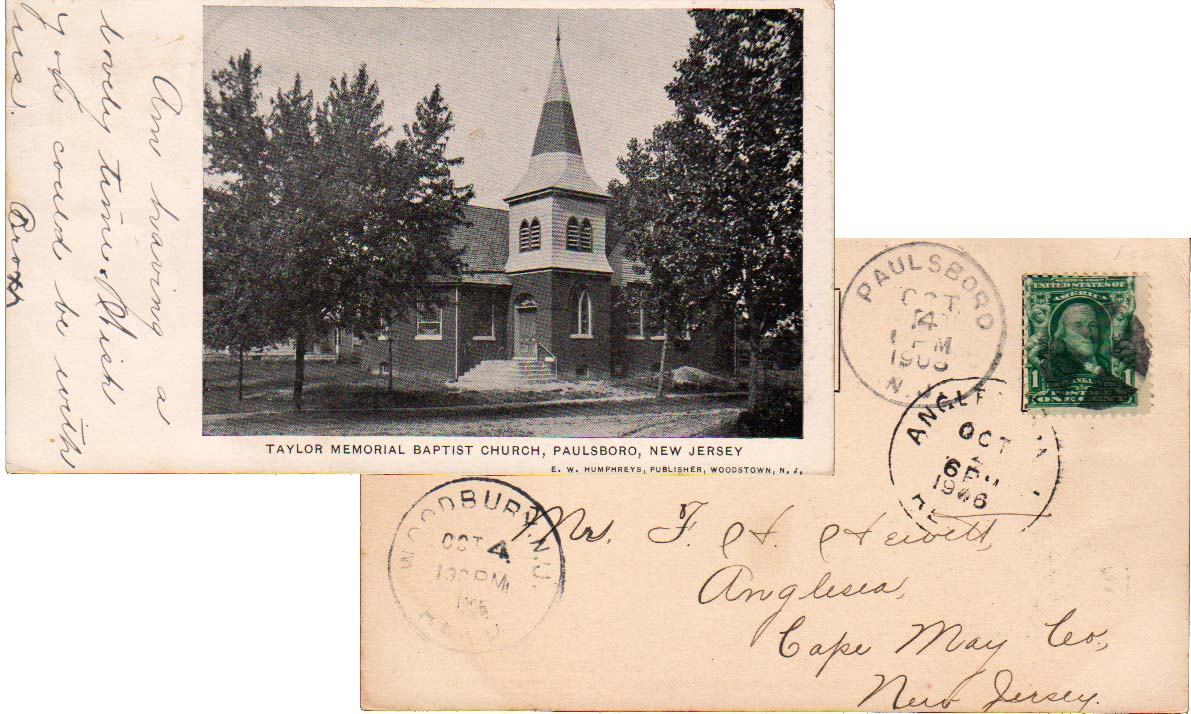 Am having a
lovely time. Wish
you could be with
us.
TAYLOR MEMORIAL BAPTIST CHURCH, PAULSBORO, NEW JERSEY
E. W. HUMPHREYS, PUBLISHER, WOODSTOWN, N. J.
PAULSBORO
OCT
14
PM
N. J.
UNITED STATES OF
AMERICA
1 1
FRANKLIN
POSTAGE
ONE CENT
OCT
6 PM
1906
WOODBURY, N.J.
OCT 4
130 PM
Mr. F. H. Hewett,
Anglesea,
Cape May Co.,
New Jersey.